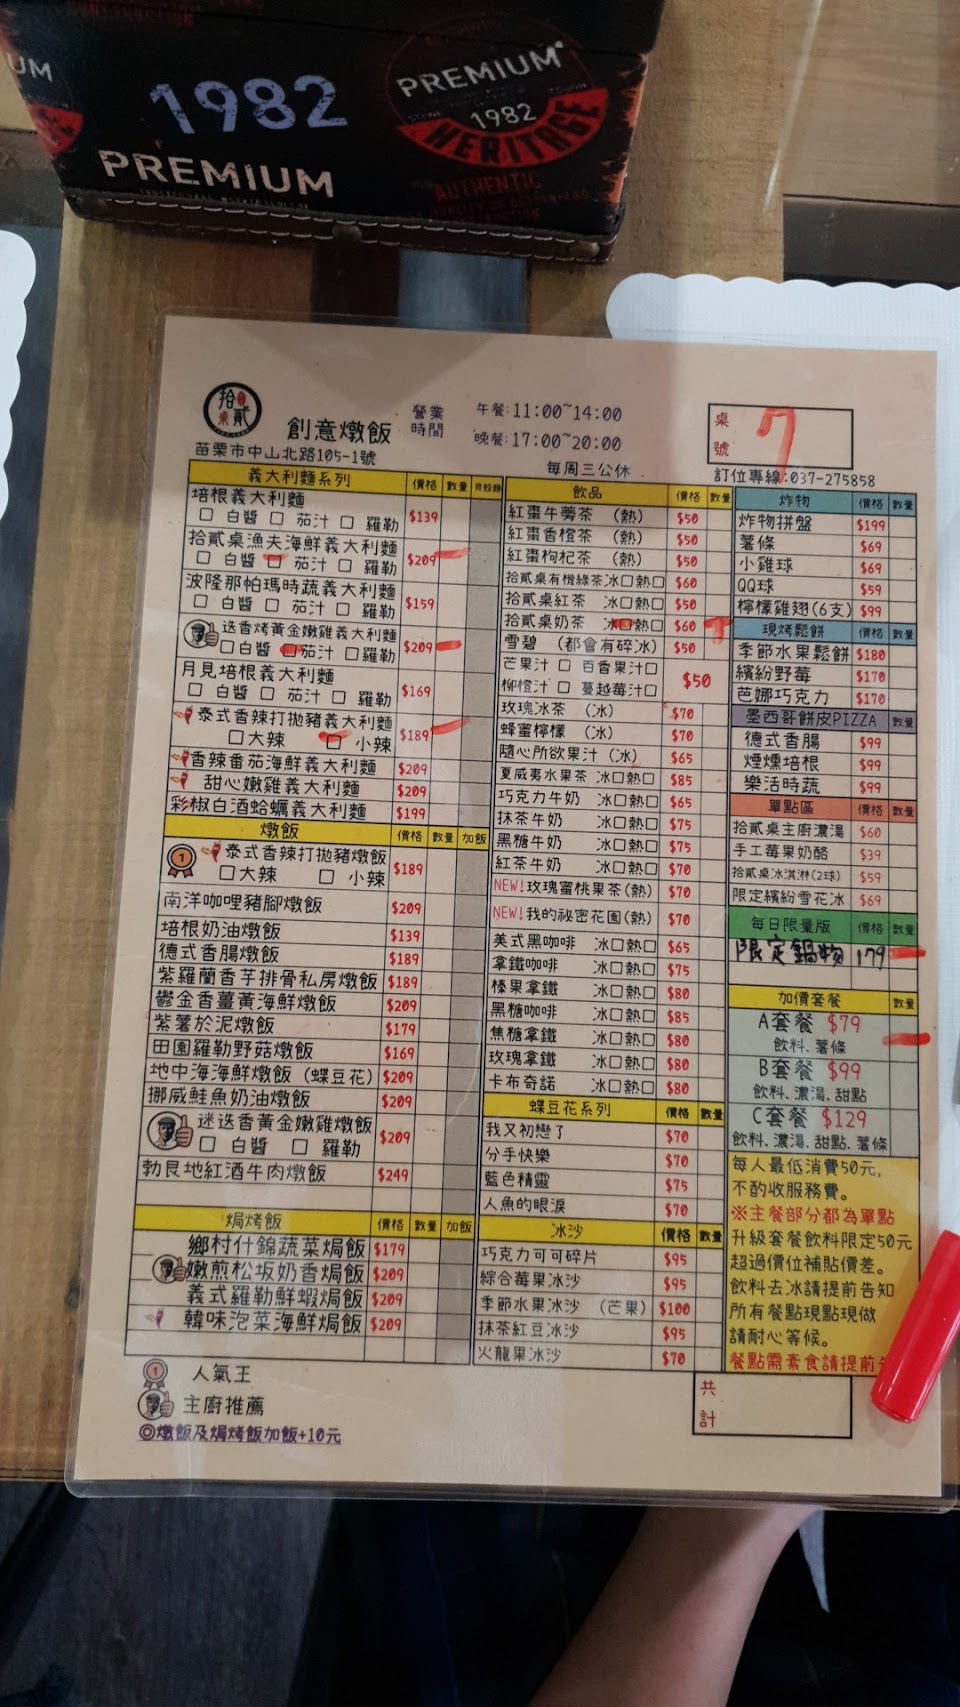 UM
1982
PREMIUM
PREMIUM
1982
HERITAGE
AUTHENTIC
拾貳桌
創意燉飯
營業時間
午餐:11:00~14:00
晚餐:17:00~20:00
每周三公休
苗栗市中山北路105-1號
桌號 7
訂位專線:037-275858
義大利麵系列 價格 數量
培根義大利麵 $139
□ 白醬 □ 茄汁 □ 羅勒
拾貳桌漁夫海鮮義大利麵 $209
□ 白醬 □ 茄汁 □ 羅勒
波隆那帕瑪時蔬義大利麵 $159
□ 白醬 □ 茄汁 □ 羅勒
迷香烤黃金嫩雞義大利麵 $209
□白醬 □茄汁 □羅勒
月見培根義大利麵 $169
□ 白醬 □ 茄汁 □ 羅勒
泰式香辣打拋豬義大利麵 $189
□大辣 □ 小辣
香辣番茄海鮮義大利麵 $209
甜心嫩雞義大利麵 $209
彩椒白酒蛤蠣義大利麵 $199
燉飯 價格 數量 加飯
1 泰式香辣打拋豬燉飯 $189
□大辣 □ 小辣
南洋咖哩豬腳燉飯 $209
培根奶油燉飯 $139
德式香腸燉飯 $189
紫羅蘭香芋排骨私房燉飯 $189
鬱金香薑黃海鮮燉飯 $209
紫薯於泥燉飯 $179
田園羅勒野菇燉飯 $169
地中海海鮮燉飯 (蝶豆花) $209
挪威鮭魚奶油燉飯 $209
迷迭香黃金嫩雞燉飯 $209
□ 白醬 □ 羅勒
勃艮地紅酒牛肉燉飯 $249
焗烤飯 價格 數量 加飯
鄉村什錦蔬菜焗飯 $179
嫩煎松坂奶香焗飯 $209
義式羅勒鮮蝦焗飯 $209
韓味泡菜海鮮焗飯 $209
1 人氣王
主廚推薦
◎燉飯及焗烤飯加飯+10元
飲品 價格 數量
紅棗牛蒡茶 (熱) $50
紅棗香橙茶 (熱) $50
紅棗枸杞茶 (熱) $50
拾貳桌有機綠茶冰□熱□ $60
拾貳桌紅茶 冰□熱□ $50
拾貳桌奶茶 冰□熱□ $60
雪碧 (都會有碎冰) $50
芒果汁 □ 百香果汁□
柳橙汁 □ 蔓越莓汁□ $50
玫瑰冰茶 (冰) $70
蜂蜜檸檬 (冰) $70
隨心所欲果汁 (冰) $65
夏威夷水果茶 冰□熱□ $85
巧克力牛奶 冰□熱□ $65
抹茶牛奶 冰□熱□ $75
黑糖牛奶 冰□熱□ $75
紅茶牛奶 冰□熱□ $70
NEW!玫瑰蜜桃果茶(熱) $70
NEW!我的祕密花園(熱) $70
美式黑咖啡 冰□熱□ $65
拿鐵咖啡 冰□熱□ $75
榛果拿鐵 冰□熱□ $80
黑糖咖啡 冰□熱□ $85
焦糖拿鐵 冰□熱□ $80
玫瑰拿鐵 冰□熱□ $80
卡布奇諾 冰□熱□ $80
蝶豆花系列 價格 數量
我又初戀了 $70
分手快樂 $70
藍色精靈 $75
人魚的眼淚 $70
冰沙 價格 數量
巧克力可可碎片 $95
綜合莓果冰沙 $95
季節水果冰沙 (芒果) $100
抹茶紅豆冰沙 $95
火龍果冰沙 $70
炸物 價格 數量
炸物拼盤 $199
薯條 $69
小雞球 $69
QQ球 $59
檸檬雞翅(6支) $99
現烤鬆餅 價格 數量
季節水果鬆餅 $180
繽紛野莓 $170
芭娜巧克力 $170
墨西哥餅皮PIZZA 數量
德式香腸 $99
煙燻培根 $99
樂活時蔬 $99
單點區 價格 數量
拾貳桌主廚濃湯 $60
手工莓果奶酪 $39
拾貳桌冰淇淋(2球) $59
限定繽紛雪花冰 $69
每日限量版 價格 數量
限定鍋物 179
加價套餐 數量
A套餐 $79
飲料、薯條
B套餐 $99
飲料、濃湯、甜點
C套餐 $129
飲料、濃湯、甜點、薯條
每人最低消費50元,
不酌收服務費。
※主餐部分都為單點
升級套餐飲料限定50元
超過價位補貼價差。
飲料去冰請提前告知
所有餐點現點現做
請耐心等候。
餐點需素食請提前
共計